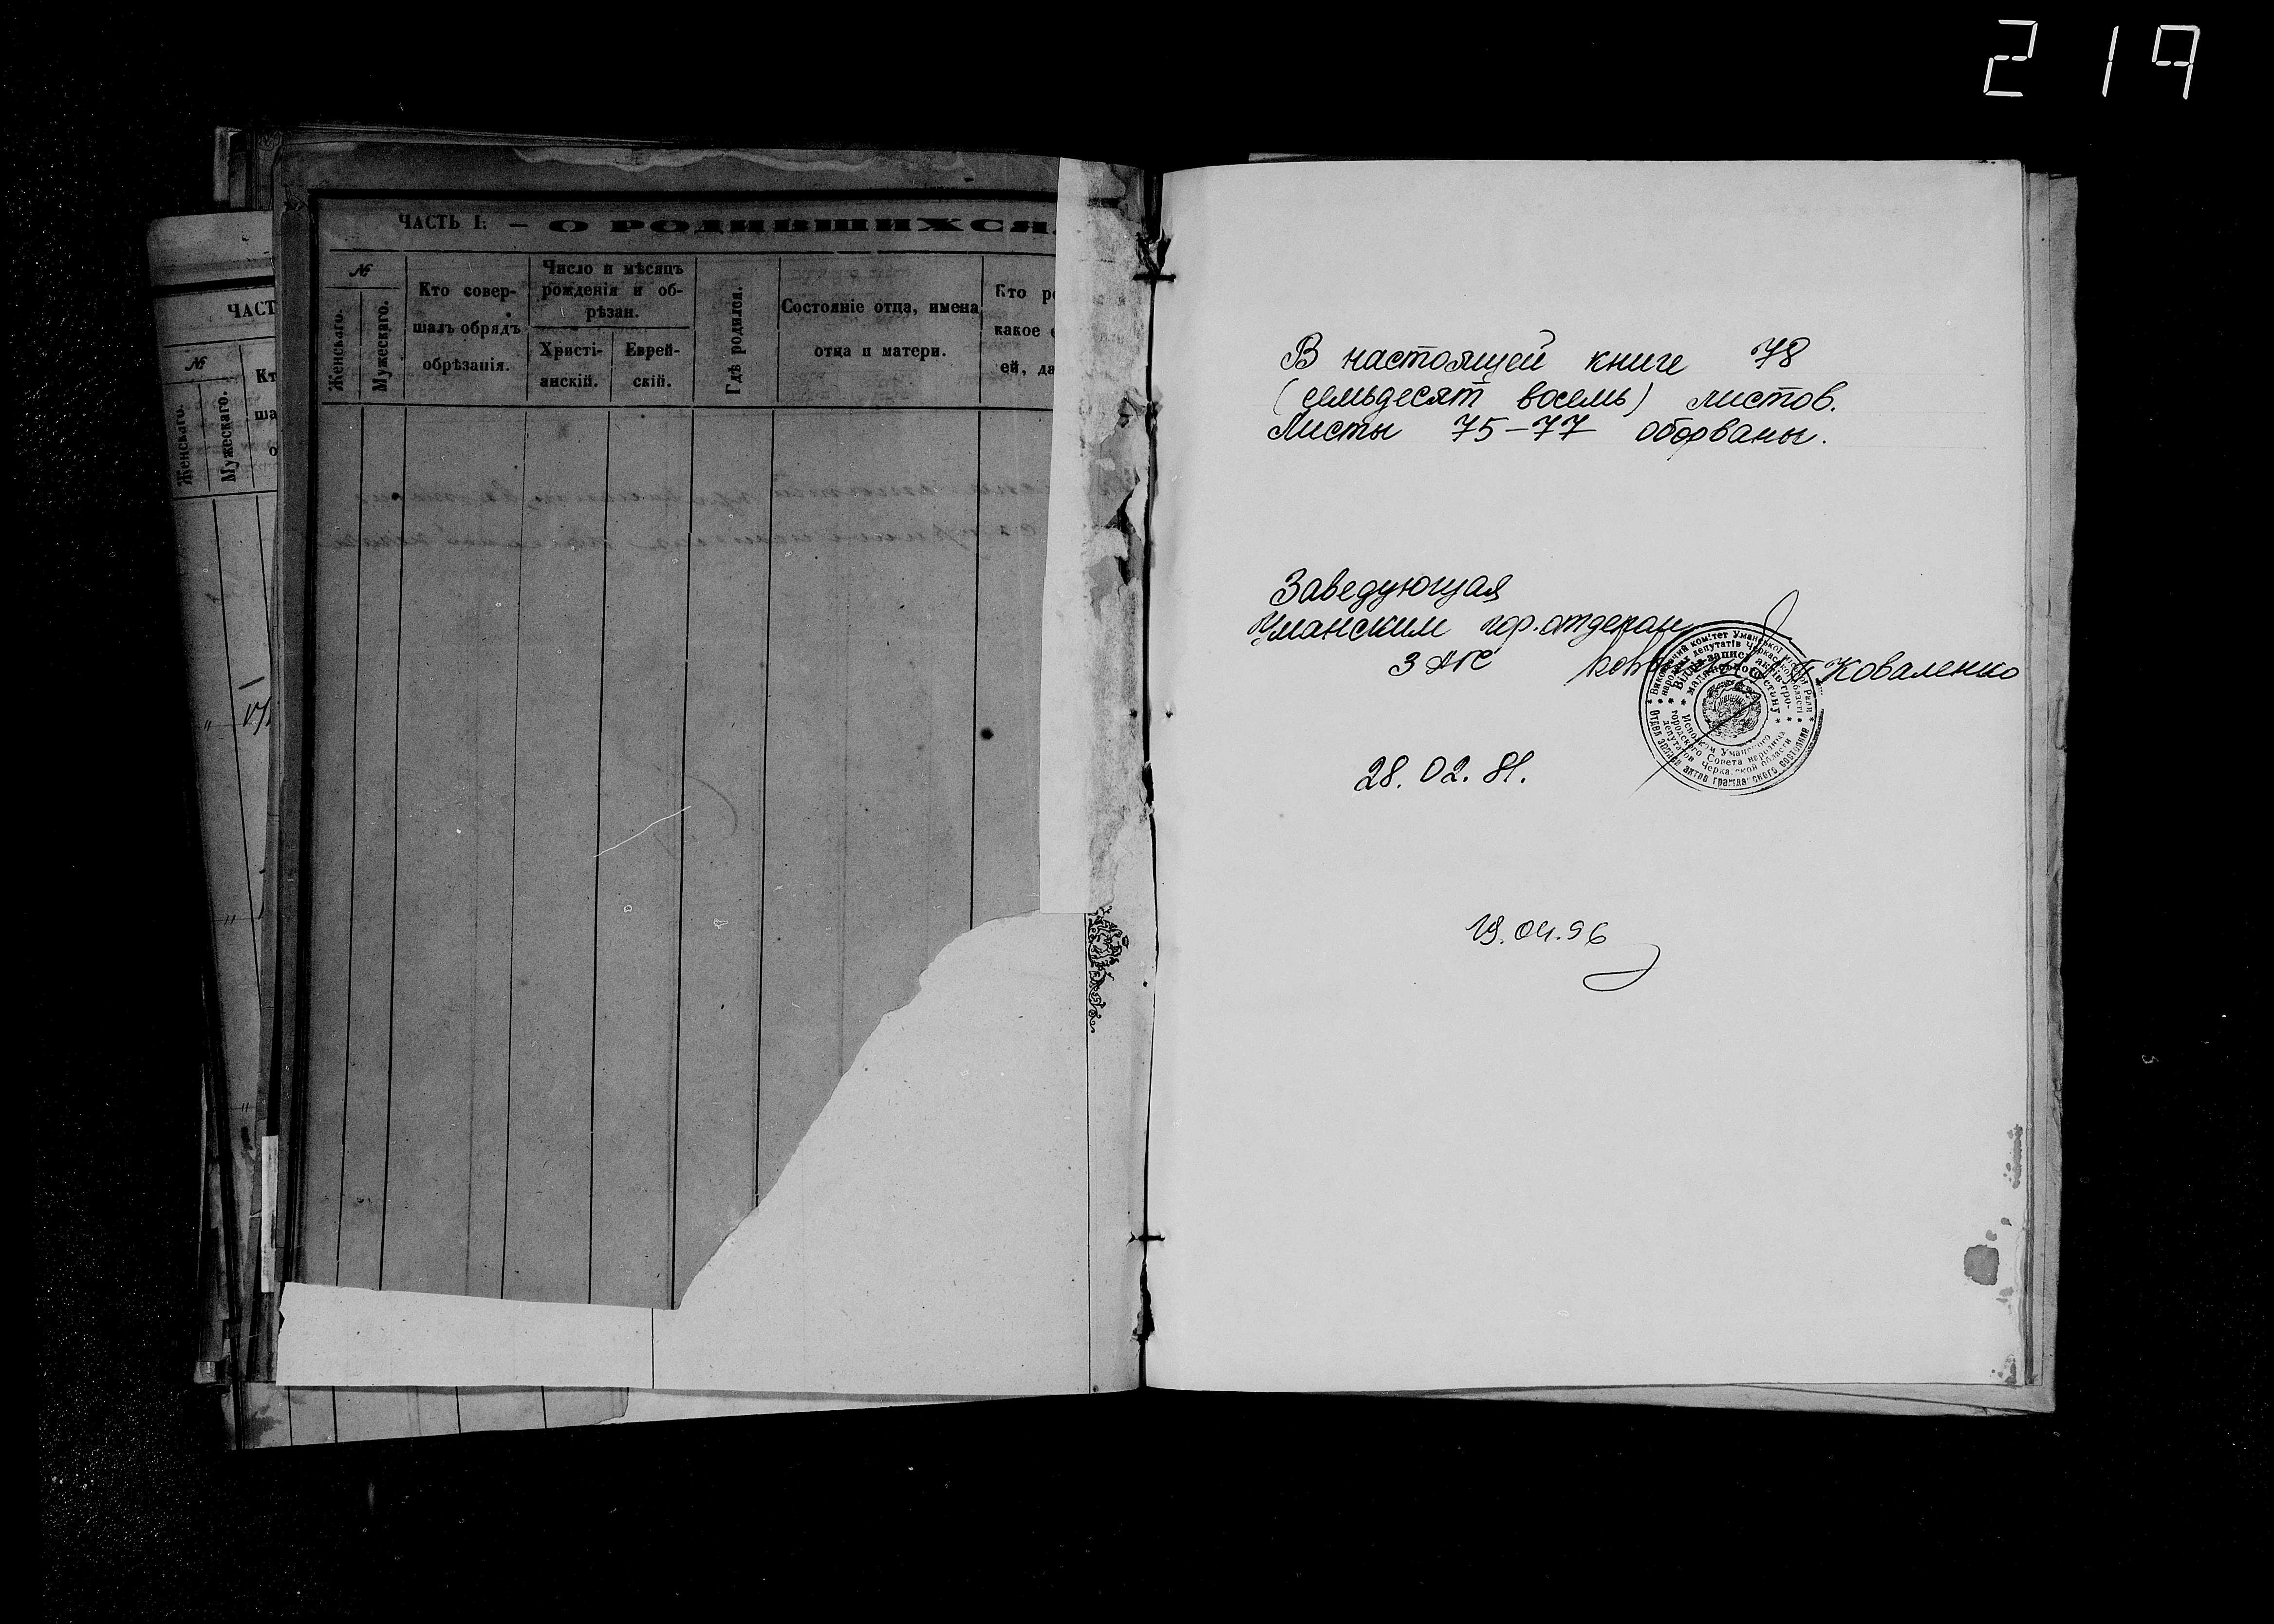 219
ЧАСТЬ I. — О РОДИВШИХСЯ.
№
Женскаго.
Мужескаго.
Кто совер-
шалъ обрядъ
обрѣзанія.
Число и мѣсяцъ
рожденія и об-
рѣзан.
Христі-
анскій.
Еврей-
скій.
Гдѣ родился.
Состояніе отца, имена
отца и матери.
Кто
какое
ей,
ЧАСТ
№
Женскаго.
Мужескаго.
В настоящей книге 78
(семьдесят восемь) листов.
Листы 75-77 оборваны.
Заведующая
Уманским гор.отделом
ЗАГС Коваленко
Виконавчий комітет Уманської міської Ради
народних депутатів Черкаської області
Відділ запису актів гро-
мадянського стану
Исполком Уманского
городского Совета народных
депутатов Черкасской области
Отдел записи актов гражданского состояния
28.02.81.
19.04.96